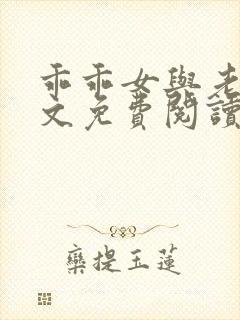 乖乖女與老
文免費閱讀
欒提玉蓮